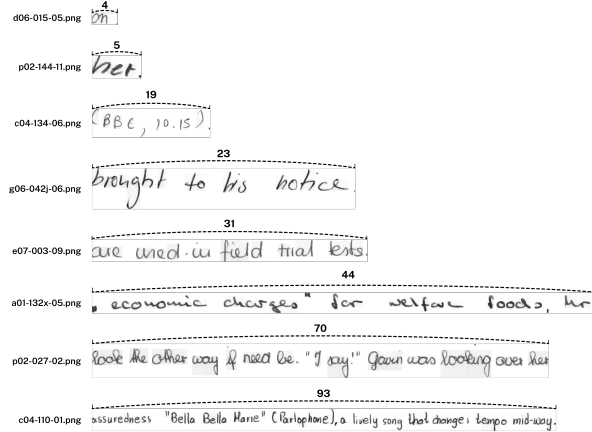 4
d06-015-05.png on
5
p02-144-11.png her.
19
c04-134-06.png (BBC, 10.15).
23
g06-042j-06.png brought to his notice.
31
e07-003-09.png are used in field trial tests.
44
a01-132x-05.png " economic charges" for welfare foods, Mr
70
p02-027-02.png look the other way if need be. "I say!" Gavin was looking over her
93
c04-110-01.png assuredness "Bella Bella Marie" (Parlophone), a lively song that changes tempo mid-way.